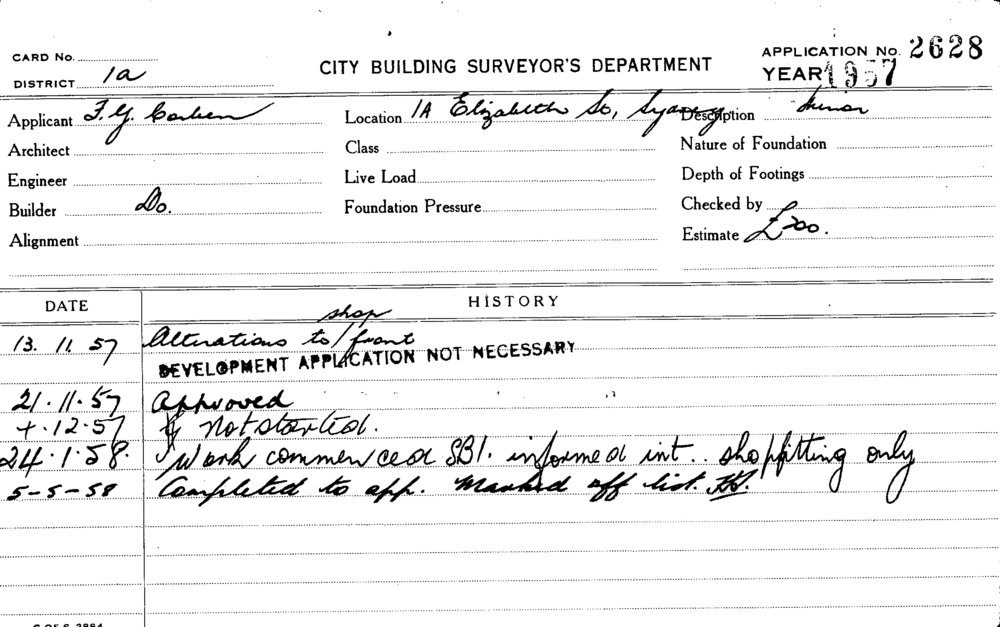 CARD No.
DISTRICT 1a
CITY BUILDING SURVEYOR'S DEPARTMENT
APPLICATION No. 2628
YEAR 1957
Applicant F. G.
Location 1A Elizabeth St, Sydney
Description Minor
Architect
Class
Nature of Foundation
Engineer
Live Load
Depth of Footings
Builder Do.
Foundation Pressure
Checked by
Alignment
Estimate £200.
DATE
HISTORY
shop
13. 11. 57 Alterations to / front
DEVELOPMENT APPLICATION NOT NECESSARY
21. 11. 57 Approved
4. 12. 57 Not started.
24. 1. 58. Work commenced SBI. informed int.. shopfitting only
5-5-58 Completed to app. Marked off list.
C OF S 2884